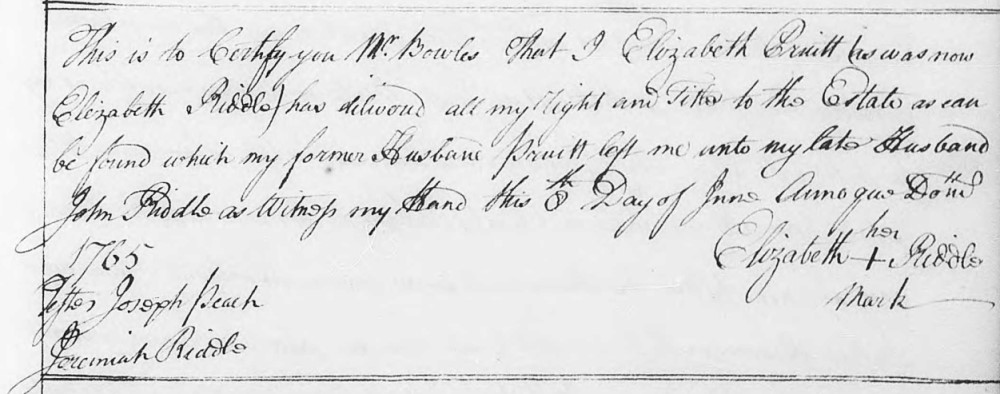 This is to Certify you Mr. Bowles That I Elizabeth Pruitt (as was now
Elizabeth Riddle) has diliverd all my right and Title to the Estate as can
be found which my former Husband Pruitt left me unto my late Husband
John Riddle as Witness my Hand this 8th Day of June Annoque Dom
1765
Elizabeth her + Riddle
Mark
Testes Joseph Peach
Jeremiah Riddle